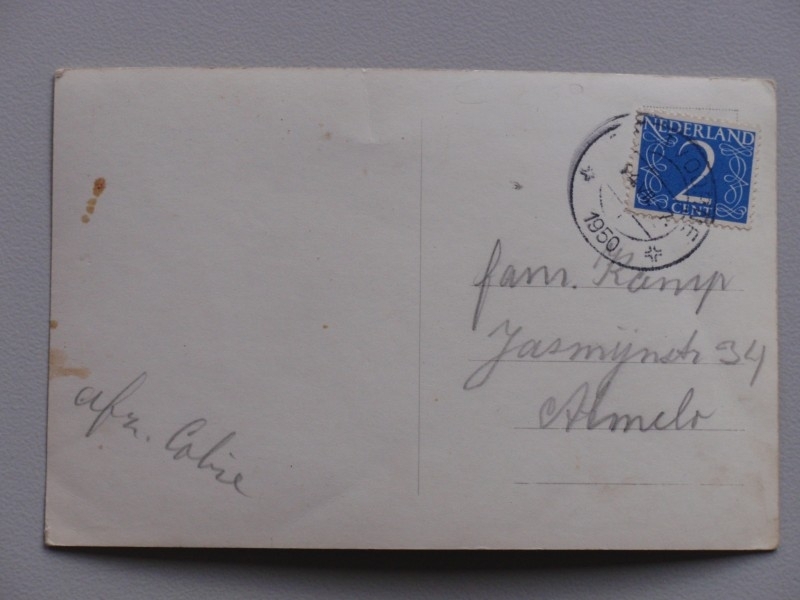 NEDERLAND
2
CENT
1950
fam. Kamp
Jasmijnstr 34
Almelo
afz. Cobie